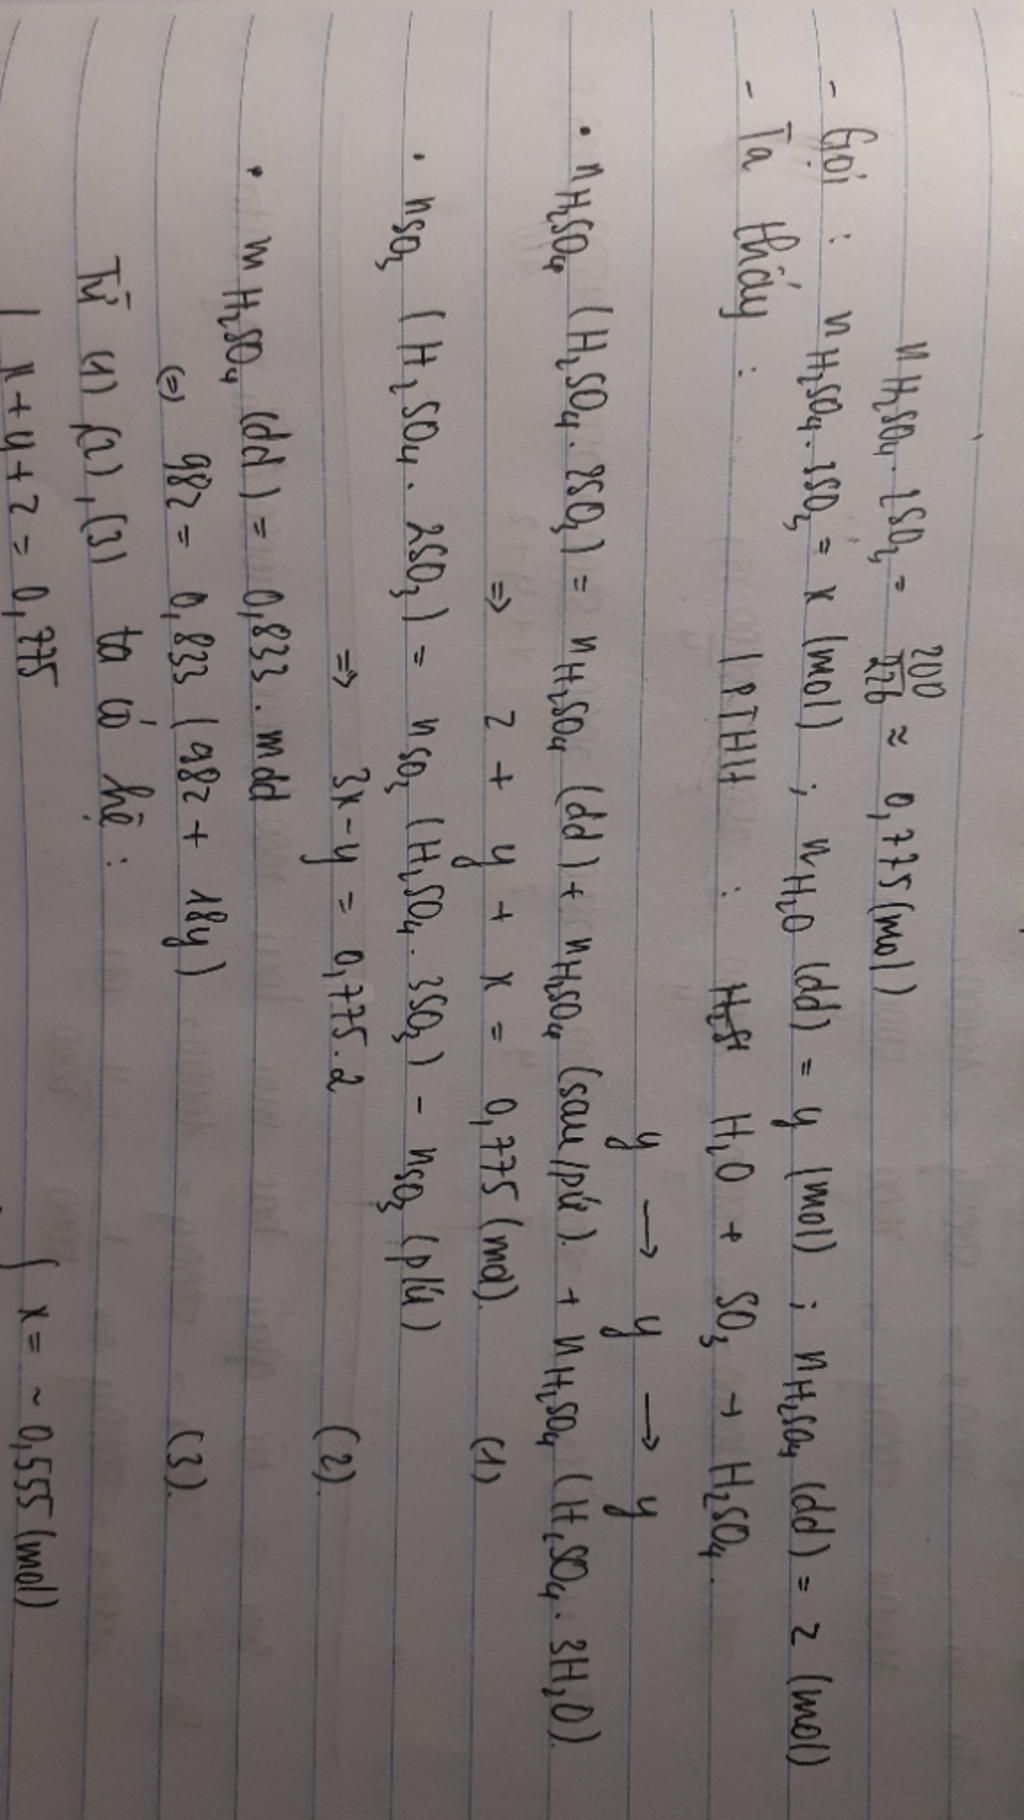 nH₂SO₄.2SO₃ = 200/226 ≈ 0,775 (mol)
- Gọi : nH₂SO₄.3SO₃ = x (mol) ; nH₂O (dd) = y (mol) ; nH₂SO₄ (dd) = z (mol)
- Ta thấy : | PTHH : H₂O + SO₃ → H₂SO₄.
y → y → y
• nH₂SO₄ (H₂SO₄.2SO₃) = nH₂SO₄ (dd) + nH₂SO₄ (sau p/ứ). + nH₂SO₄ (H₂SO₄.3H₂O).
=> z + y + x = 0,775 (mol). (1)
• nSO₃ (H₂SO₄.2SO₃) = nSO₃ (H₂SO₄.3SO₃) - nSO₃ (p/ứ)
=> 3x - y = 0,775.2 (2).
• mH₂SO₄ (dd) = 0,833.mdd
(=) 98z = 0,833 (98z + 18y) (3).
Từ (1) (2), (3) ta có hệ :
x + y + z = 0,775 { x = ~ 0,555 (mol)